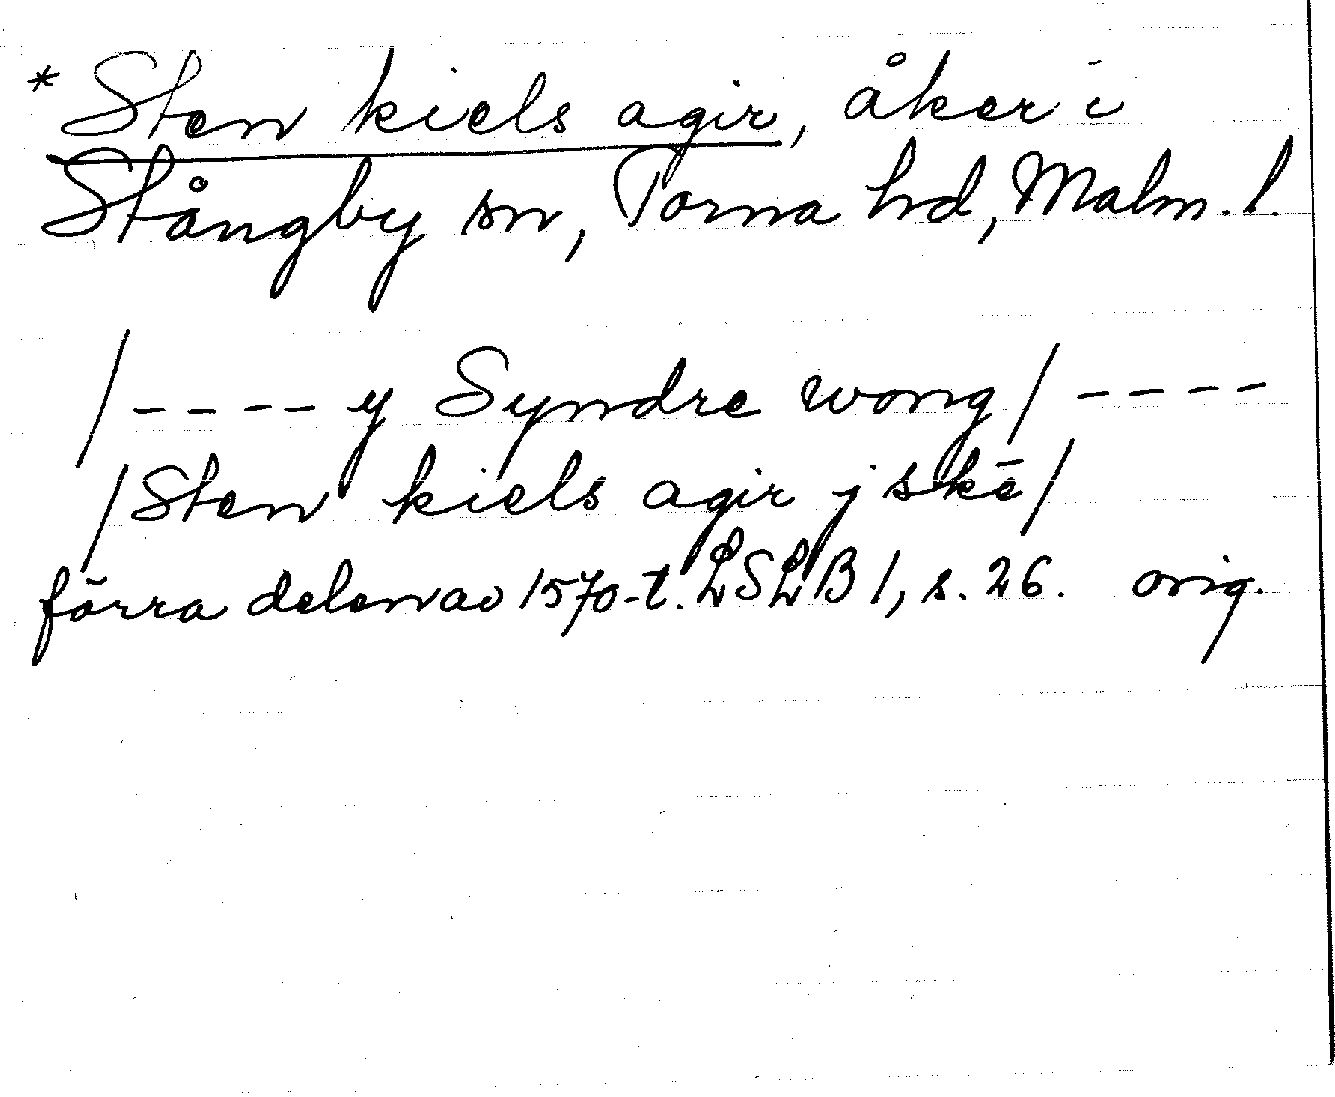 *Sten kiels agir, åker i
Stångby sn, Torna hd, Malm. l.
/---- y Syndre wong/ ----
/Sten kiels agir j skē/
förra delen av 1570-t. LSLB 1, s. 26. orig.